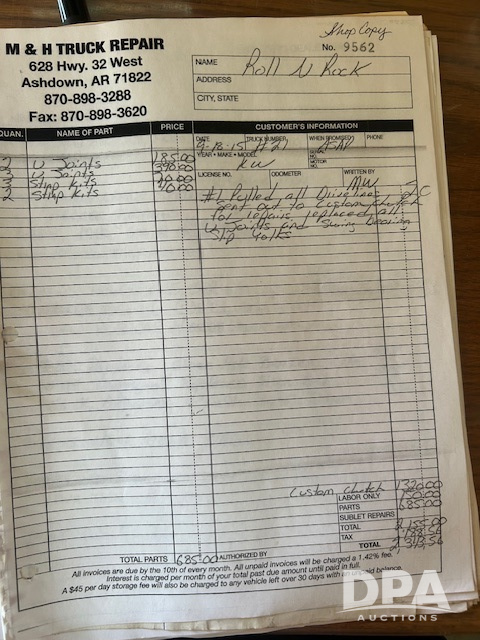 Shop Copy
M & H TRUCK REPAIR
628 Hwy. 32 West
Ashdown, AR 71822
870-898-3288
Fax: 870-898-3620
No. 9562
NAME Roll N Rock
ADDRESS
CITY, STATE
QUAN. NAME OF PART PRICE
CUSTOMER'S INFORMATION
DATE TRUCK NUMBER WHEN PROMISED PHONE
9-18-15 #27 ASAP
YEAR - MAKE - MODEL SERIAL NO.
KW MOTOR NO.
LICENSE NO. ODOMETER WRITTEN BY
MW
2 U Joints 185.00
3 U Joints
3 Strap Kits
2 Strap Kits 40.00
#1 Pulled all Drivelines
sent out to Custom Clutch
for repairs, replaced all
U Joints and Swing Bearing
Slip Yolks
Custom Clutch 1320.00
LABOR ONLY 150.00
PARTS 685.00
SUBLET REPAIRS
TOTAL 2,155.00
TAX
TOTAL
TOTAL PARTS 685.00 AUTHORIZED BY
All invoices are due by the 10th of every month. All unpaid invoices will be charged a 1.42% fee.
Interest is charged per month of your total past due amount until paid in full.
A $45 per day storage fee will also be charged to any vehicle left over 30 days with an unpaid balance.
DPA
AUCTIONS